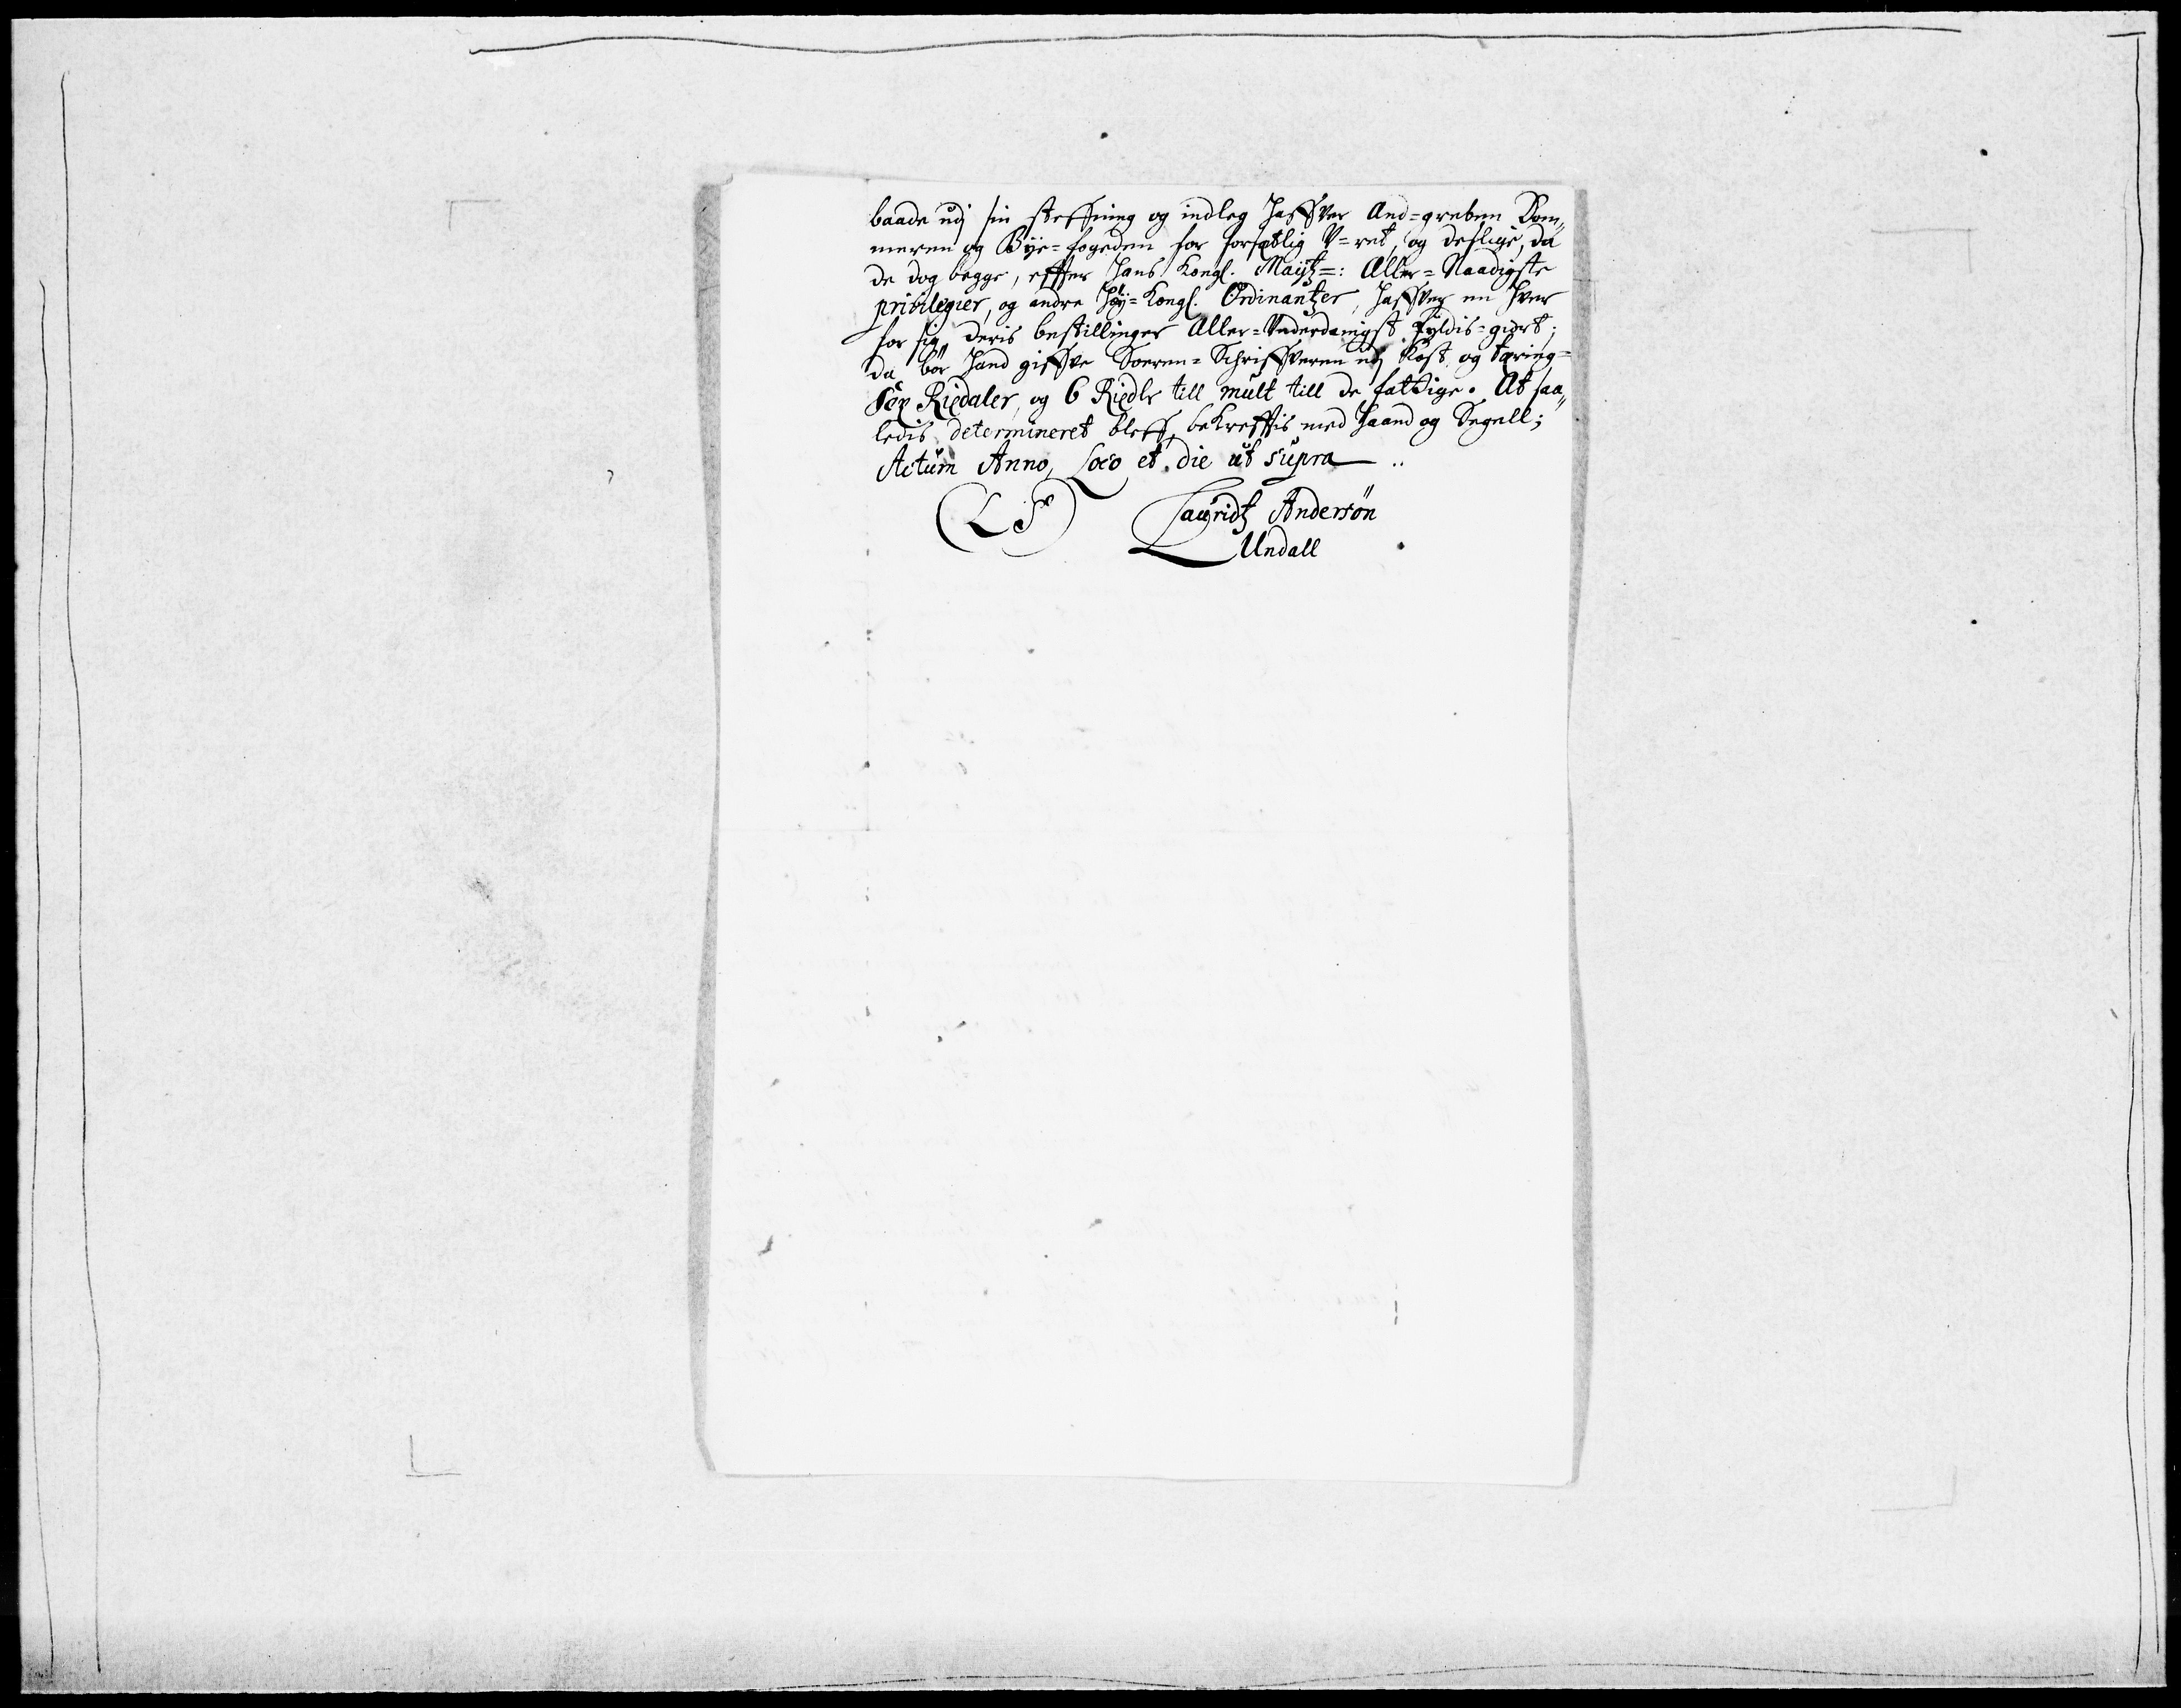 baade udj sin steffning og indleg haffver And=greben Dom„
meren og Bÿe=fogeden for forsætlig V=ret, og deslige, da
de dog begge, effter hans Kongl. Maÿtz=: Aller=Naadigste
privilegier, og andre Høÿ=Kongl. Ordinantzer, haffver en hver
for sig, deris bestillinger Aller=Vnderdanigst fyldis=giort;
da bør hand giffve Soeren=Schriffveren udj Kost og tæring=
Sex Rixdaler, og 6 Rixdlr till mult till de fattige. At saa„
ledis determineret bleff, bekrefftis med haand og Segell;
Actum Anno, Loco et die ut supra
(L S) Lauridtz Andersøn
Undall